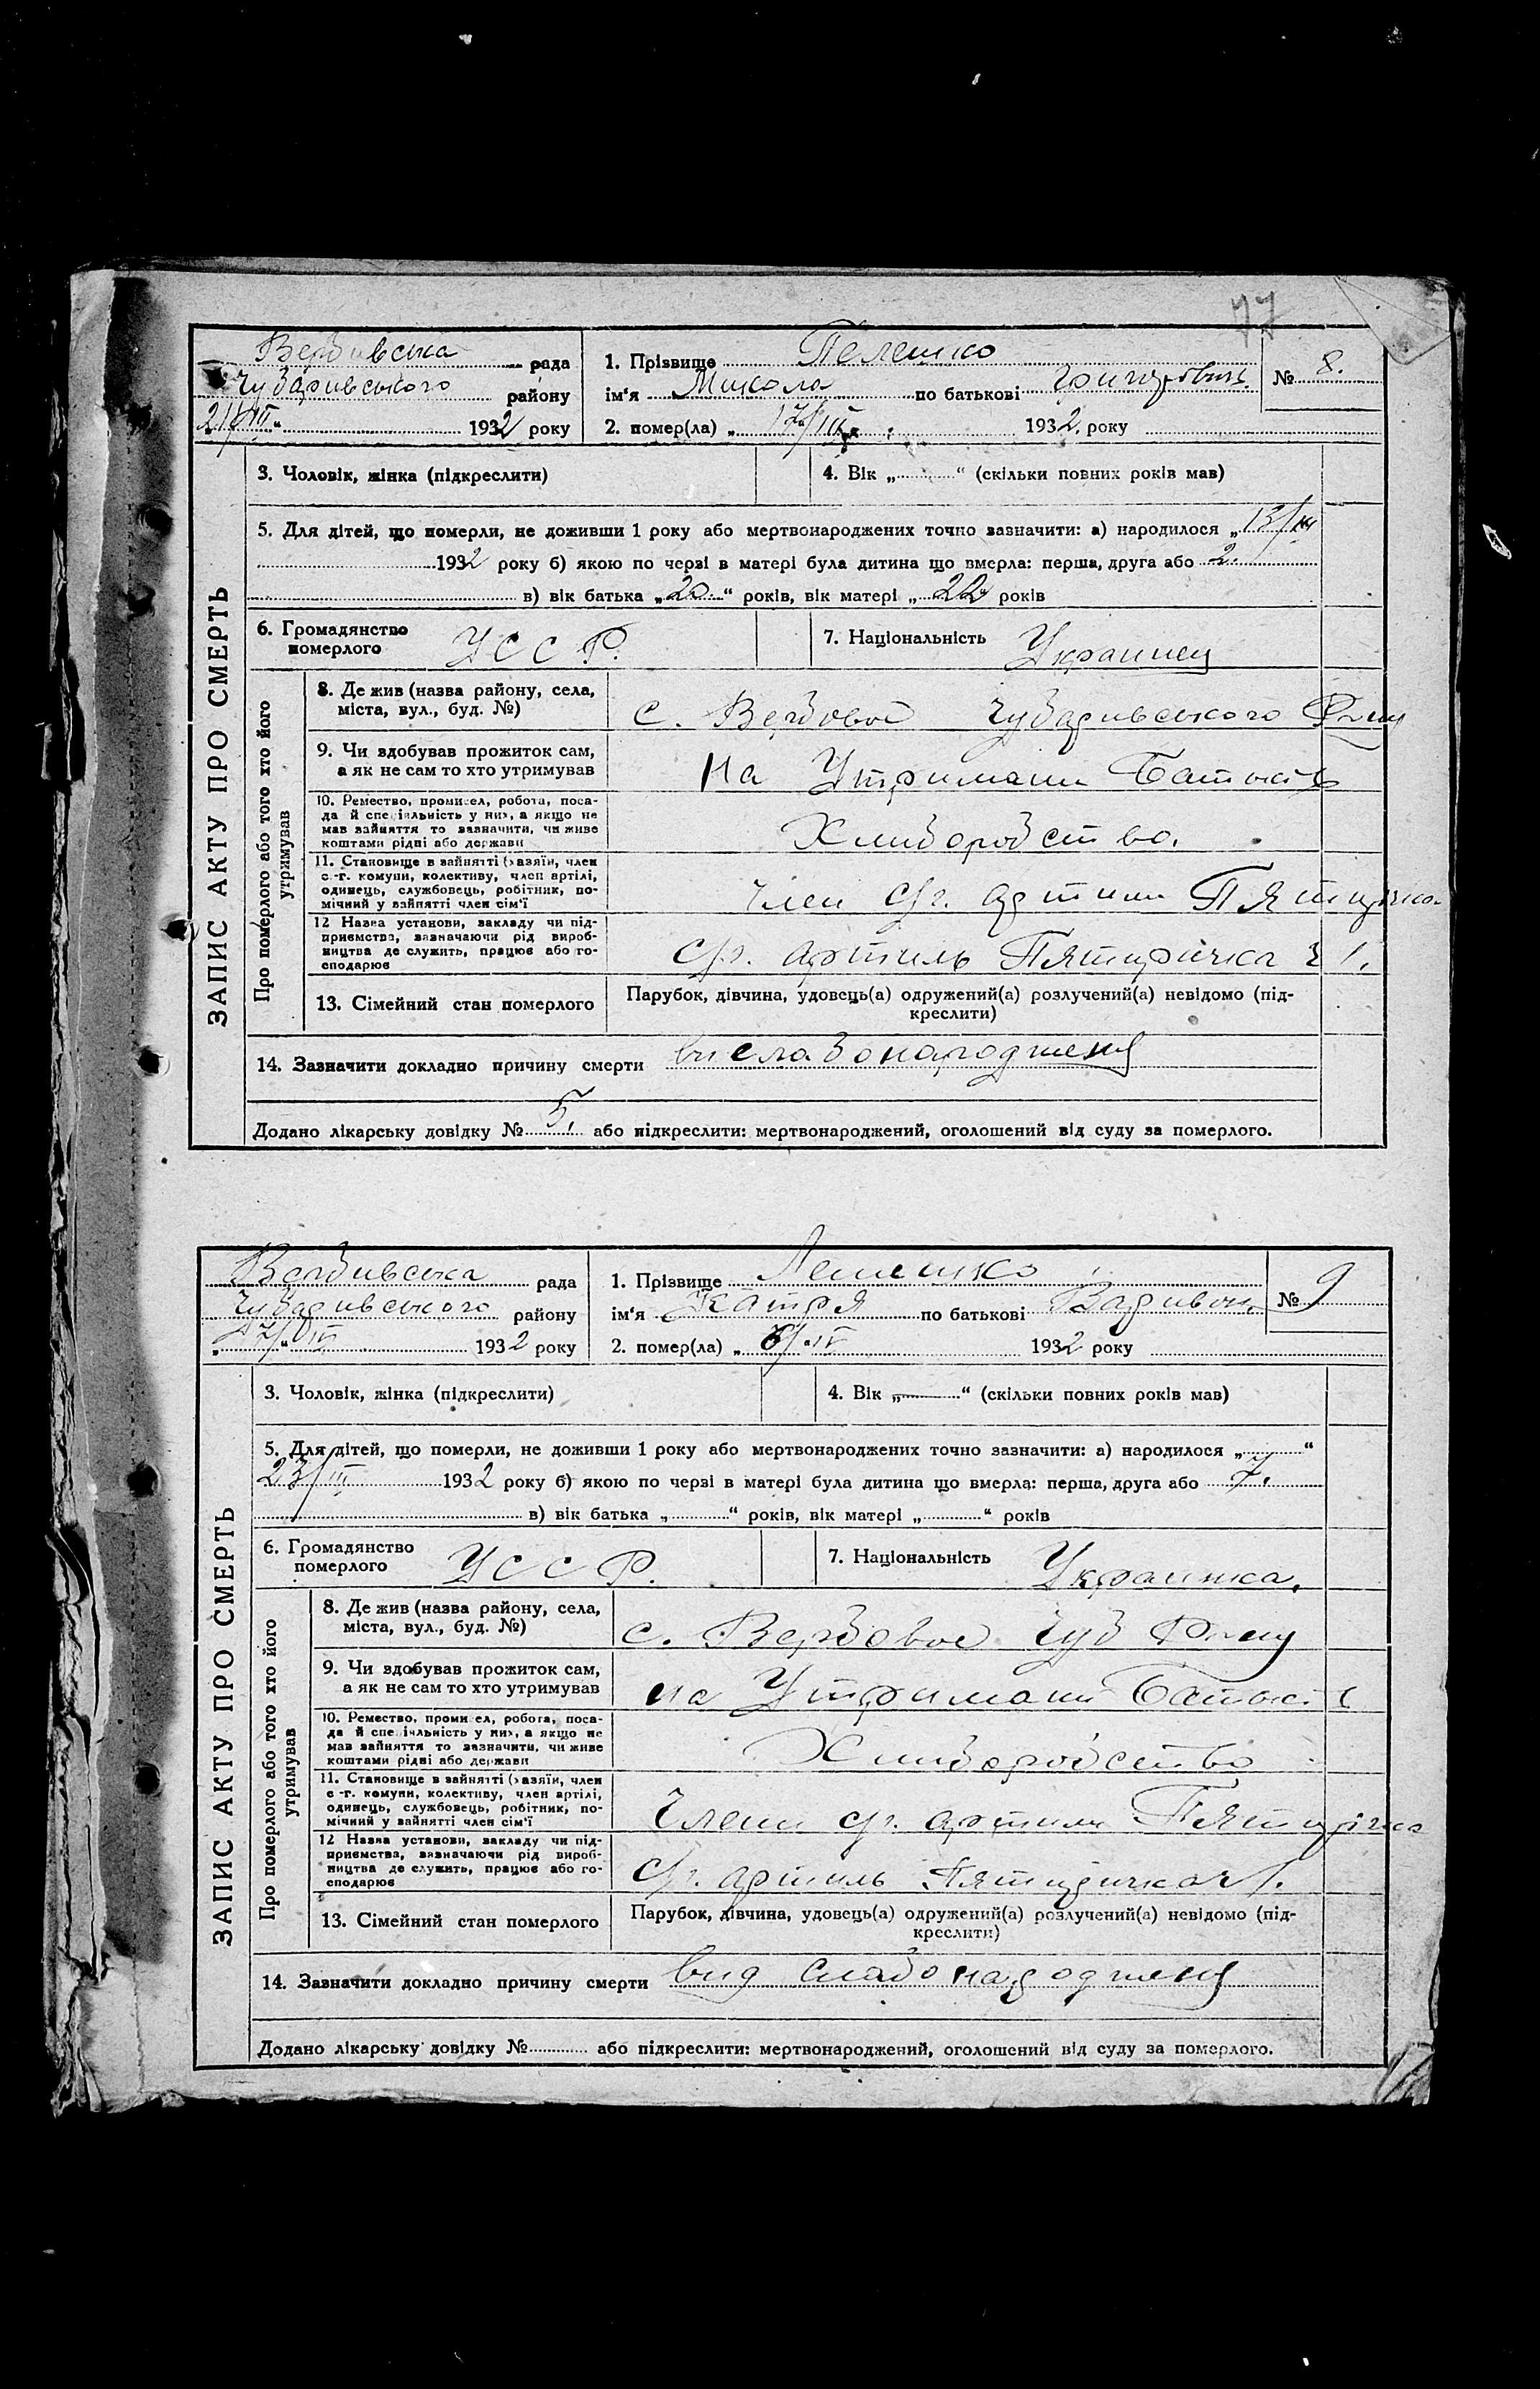 77
ЗАПИС АКТУ ПРО СМЕРТЬ
Вербивська рада
Чубаривського району
21/III 1932 року
1. Прізвище Пелешко
ім'я Микола по батькові Григорович
№ 8.
2. помер(ла) „ 17/III 1932. року
3. Чоловік, жінка (підкреслити)
4. Вік „ “ (скільки повних років мав)
5. Для дітей, що померли, не доживши 1 року або мертвонароджених точно зазначити: а) народилося „ 13/III
1932 року б) якою по черзі в матері була дитина що вмерла: перша, друга або 2.
в) вік батька „20.“ років, вік матері „ 22 років
6. Громадянство померлого УССР.
7. Національність Украинец
Про померлого або того хто його утримував
8. Де жив (назва району, села, міста, вул., буд. №) с. Вербовое Чубаривського Р-ну
9. Чи вдобував прожиток сам, а як не сам то хто утримував На Утримани Батькив
10. Ремество, промисел, робота, посада й спеціяльність у них, а якщо не мав зайняття то зазначити, чи живе коштами рідні або держави Хлиборобство.
11. Становище в зайнятті (хазяїн, член с.-г. комуни, колективу, член артілі, одинець, службовець, робітник, помічний у зайнятті член сім'ї член с/г. артили Пятирічка
12 Назва установи, закладу чи підприємства, зазначаючи рід виробництва де служить, працює або господарює с/г. артиль Пятирічка ч 1.
13. Сімейний стан померлого Парубок, дівчина, удовець(а) одружений(а) розлучений(а) невідомо (підкреслити)
14. Зазначити докладно причину смерти вислабонародженя
Додано лікарську довідку № 5, або підкреслити: мертвонароджений, оголошений від суду за померлого.
ЗАПИС АКТУ ПРО СМЕРТЬ
Вербивська рада
Чубаривського району
„ 17/IV 1932 року
1. Прізвище Лемешко
ім'я Катря по батькові Варивон.
№ 9
2. помер(ла) „ 6/IV 1932 року
3. Чоловік, жінка (підкреслити)
4. Вік „—“ (скільки повних років мав)
5. Для дітей, що померли, не доживши 1 року або мертвонароджених точно зазначити: а) народилося „ “
23/III 1932 року б) якою по черзі в матері була дитина що вмерла: перша, друга або 7.
в) вік батька „ “ років, вік матері „ “ років
6. Громадянство померлого УССР.
7. Національність Украинка.
Про померлого або того хто його утримував
8. Де жив (назва району, села, міста, вул., буд. №) с. Вербовое Чуб Р-ну
9. Чи вдобував прожиток сам, а як не сам то хто утримував на Утримани Батькив
10. Ремество, промисел, робота, посада й спеціяльність у них, а якщо не мав зайняття то зазначити, чи живе коштами рідні або держави Хлиборобство
11. Становище в зайнятті (хазяїн, член с.-г. комуни, колективу, член артілі, одинець, службовець, робітник, помічний у зайнятті член сім'ї Член с/г. артили Пятирічка
12 Назва установи, закладу чи підприємства, зазначаючи рід виробництва де служить, працює або господарює с/г. артиль Пятиричка ч 1.
13. Сімейний стан померлого Парубок, дівчина, удовець(а) одружений(а) розлучений(а) невідомо (підкреслити)
14. Зазначити докладно причину смерти вид слабонародженя
Додано лікарську довідку № або підкреслити: мертвонароджений, оголошений від суду за померлого.